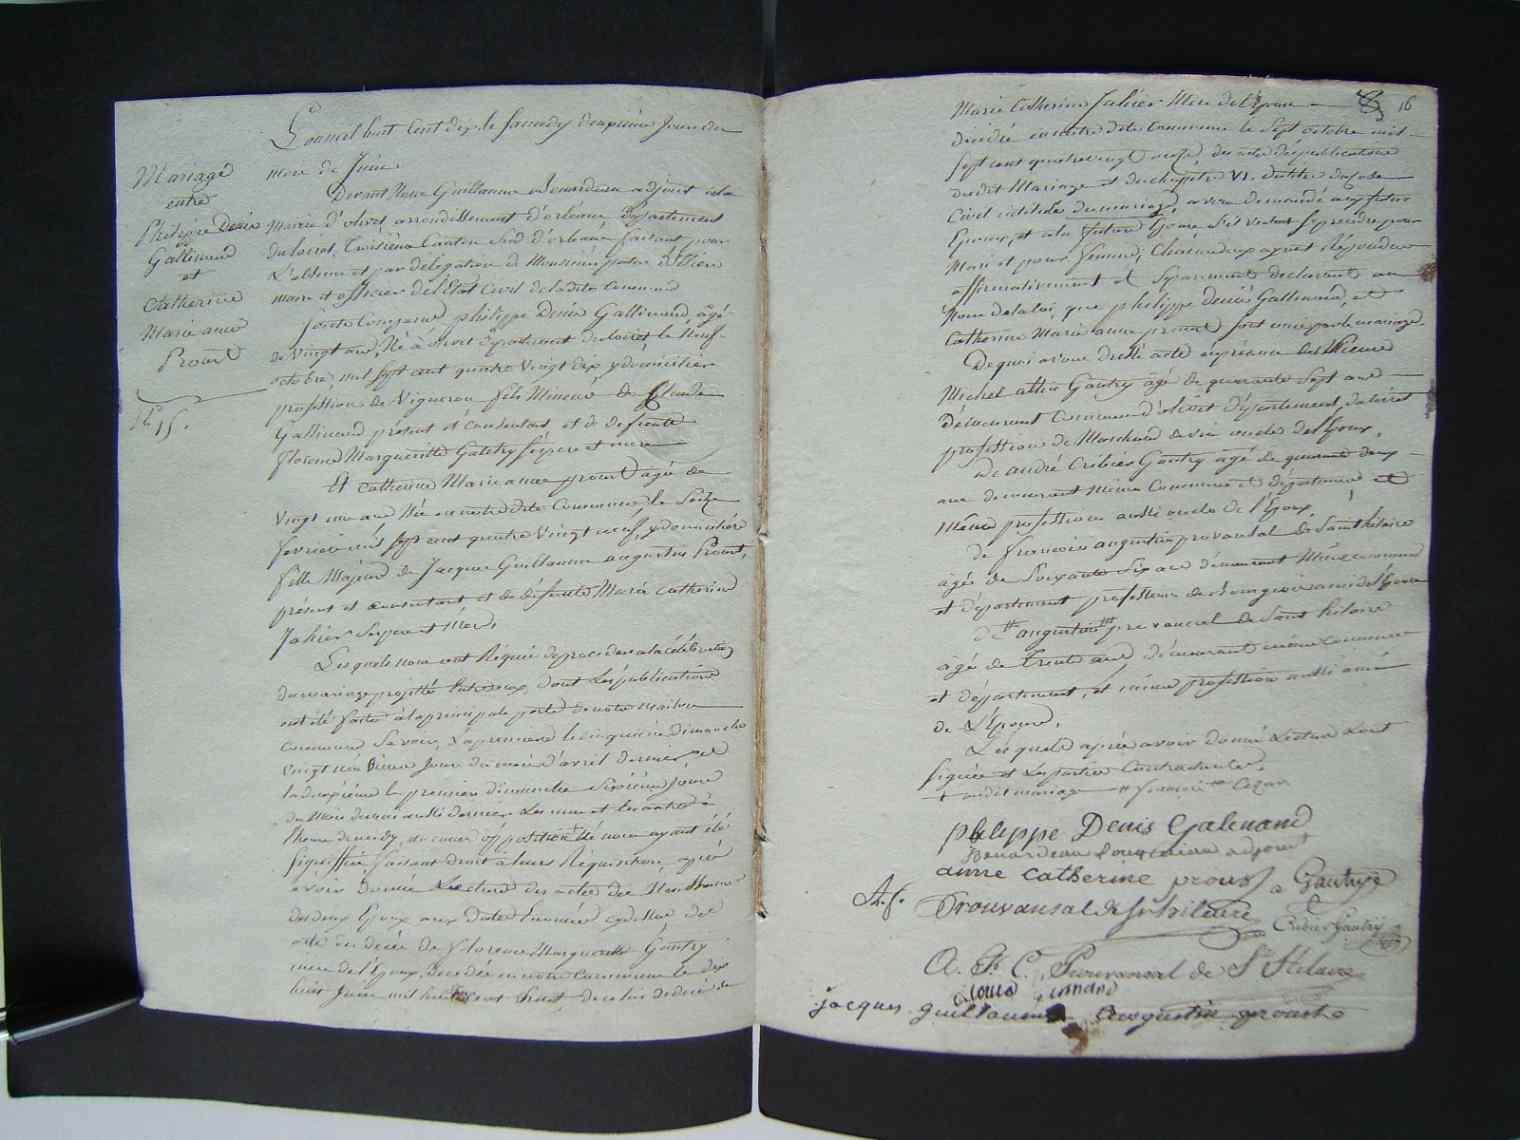 L'an mil huit cent dix le samedy deuxieme jour du
mois de Juin
Mariage
entre
Philippe Denis
Gallimand
et
Catherine
Marie anne
Prout
N° 15.
Devant Nous Guillaume adjoint de la
Mairie d'olivet arrondissement d'orléans Département
du Loiret, Troisième Canton Sud d'orléans faisant pour
L'absence et par délégation de Monsieur
maire et officier de l'Etat Civil de ladite Commune
Sont Comparus philippe Denis Gallimand, âgé
de vingt ans, Né à olivet département du loiret le Neuf
octobre mil sept cent quatre vingt dix y domicilié
profession de Vigneron fils Mineur de Claude
Gallimand présent et consentant et de defunte
florence Marguerite Gautry ses pere et mere
Et catherine Marie anne prout agée de
vingt un ans Née en notre dite Commune, le Seize
fevrier mil sept cent quatre vingt neuf, y domiciliée
fille Majeure de Jacques Guillaume augustin Prout,
présent et consentant et de défunte Marie Catherine
Jahier Ses pere et Mere,
Lesquels nous ont Requis de proceder a la célébration
du mariage projetté Entre eux, dont Les publications
ont été faites à la principale porte de notre maison
commune Savoir, La premiere le cinquieme dimanche
vingt neuvieme Jour du mois d'avril dernier et
la deuxieme le premier dimanche Sixième Jour
du Mois de mai aussi dernier Les une et les autres à
l'heure de midy, aucune opposition Ne nous ayant été
Signiffiée faisant droit à leurs Réquisitions, après
avoir Donné Lecture des actes de Naissance
des deux Epoux aux Dates Enoncées cy dessus de
acte du décès de florence Marguerite Gautry
mere de l'Epoux, Decedée en notre Commune le dix
huit Juin mil huit cent de celui de décès de
16
Marie Catherine Jahier Mere de l'Epouse
décédée en notre dite Commune le Sept octobre mil
Sept cent quatre vingt onze, des actes de publications
dudit Mariage et du chapitre VI. du titre du code
Civil intitulé du mariage, avons demandé au futur
Epoux, et a la future Epouse s'ils veulent se prendre pour
Mari et pour femme, Chacun d'eux ayant répondu
affirmativement et Séparément declarons au
Nom de la loi, que philippe denis Gallimand et
Catherine Marie anne prout sont unis par le mariage
De quoi avons dressé acte en présence des Sieurs
Michel Gautry âgé de quarante Sept ans
demeurant Commune d'olivet département du loiret
profession de Marchand de vin oncle de l'Epoux,
De andré Cribier Gautry agé de quarante deux
ans demeurant même Commune et département et
Même profession aussi oncle de l'Epoux,
de françois augustin provansal de Saint hilaire
âgé de Soixante Six ans demeurant Même commune
et département profession de Bourgeois ami de l'Epouse
De augustin provansal de Saint hilaire
âgé de trente ans, demeurant même Commune
et département, et même profession aussi ami
de L'Epouse,
Lesquels après avoir Donné Lecture sont
signés et Les parties Contractantes.
+ audit mariage
philippe Denis Galimand
adjoint
anne catherine proust
Gautrye
A. f. Prouvansal de St hilaire
Cribier Gautry
A. F. C. Prouvansal de St Hilaire
jacques guillaume augustin proust